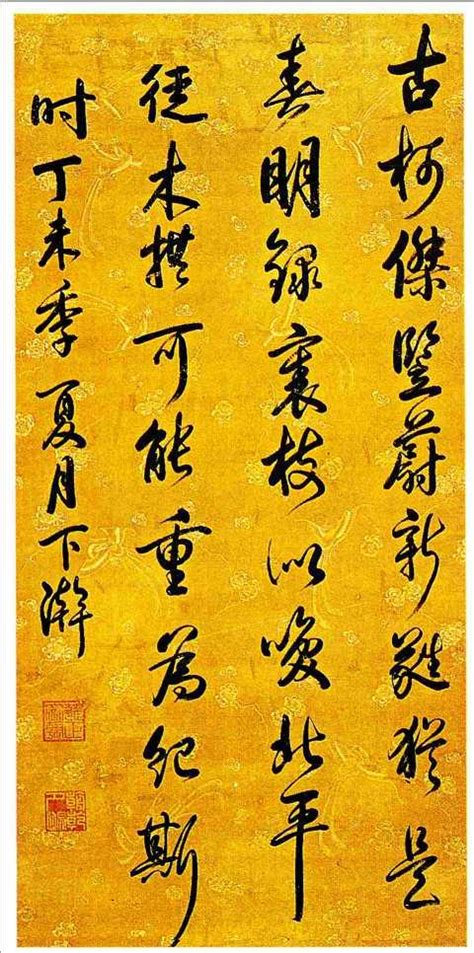 古柯傑竪蔚新蕤猶是
春明錄裏枝以喚北平
徒木撰可能重為紀斯
时丁未季夏月下澣